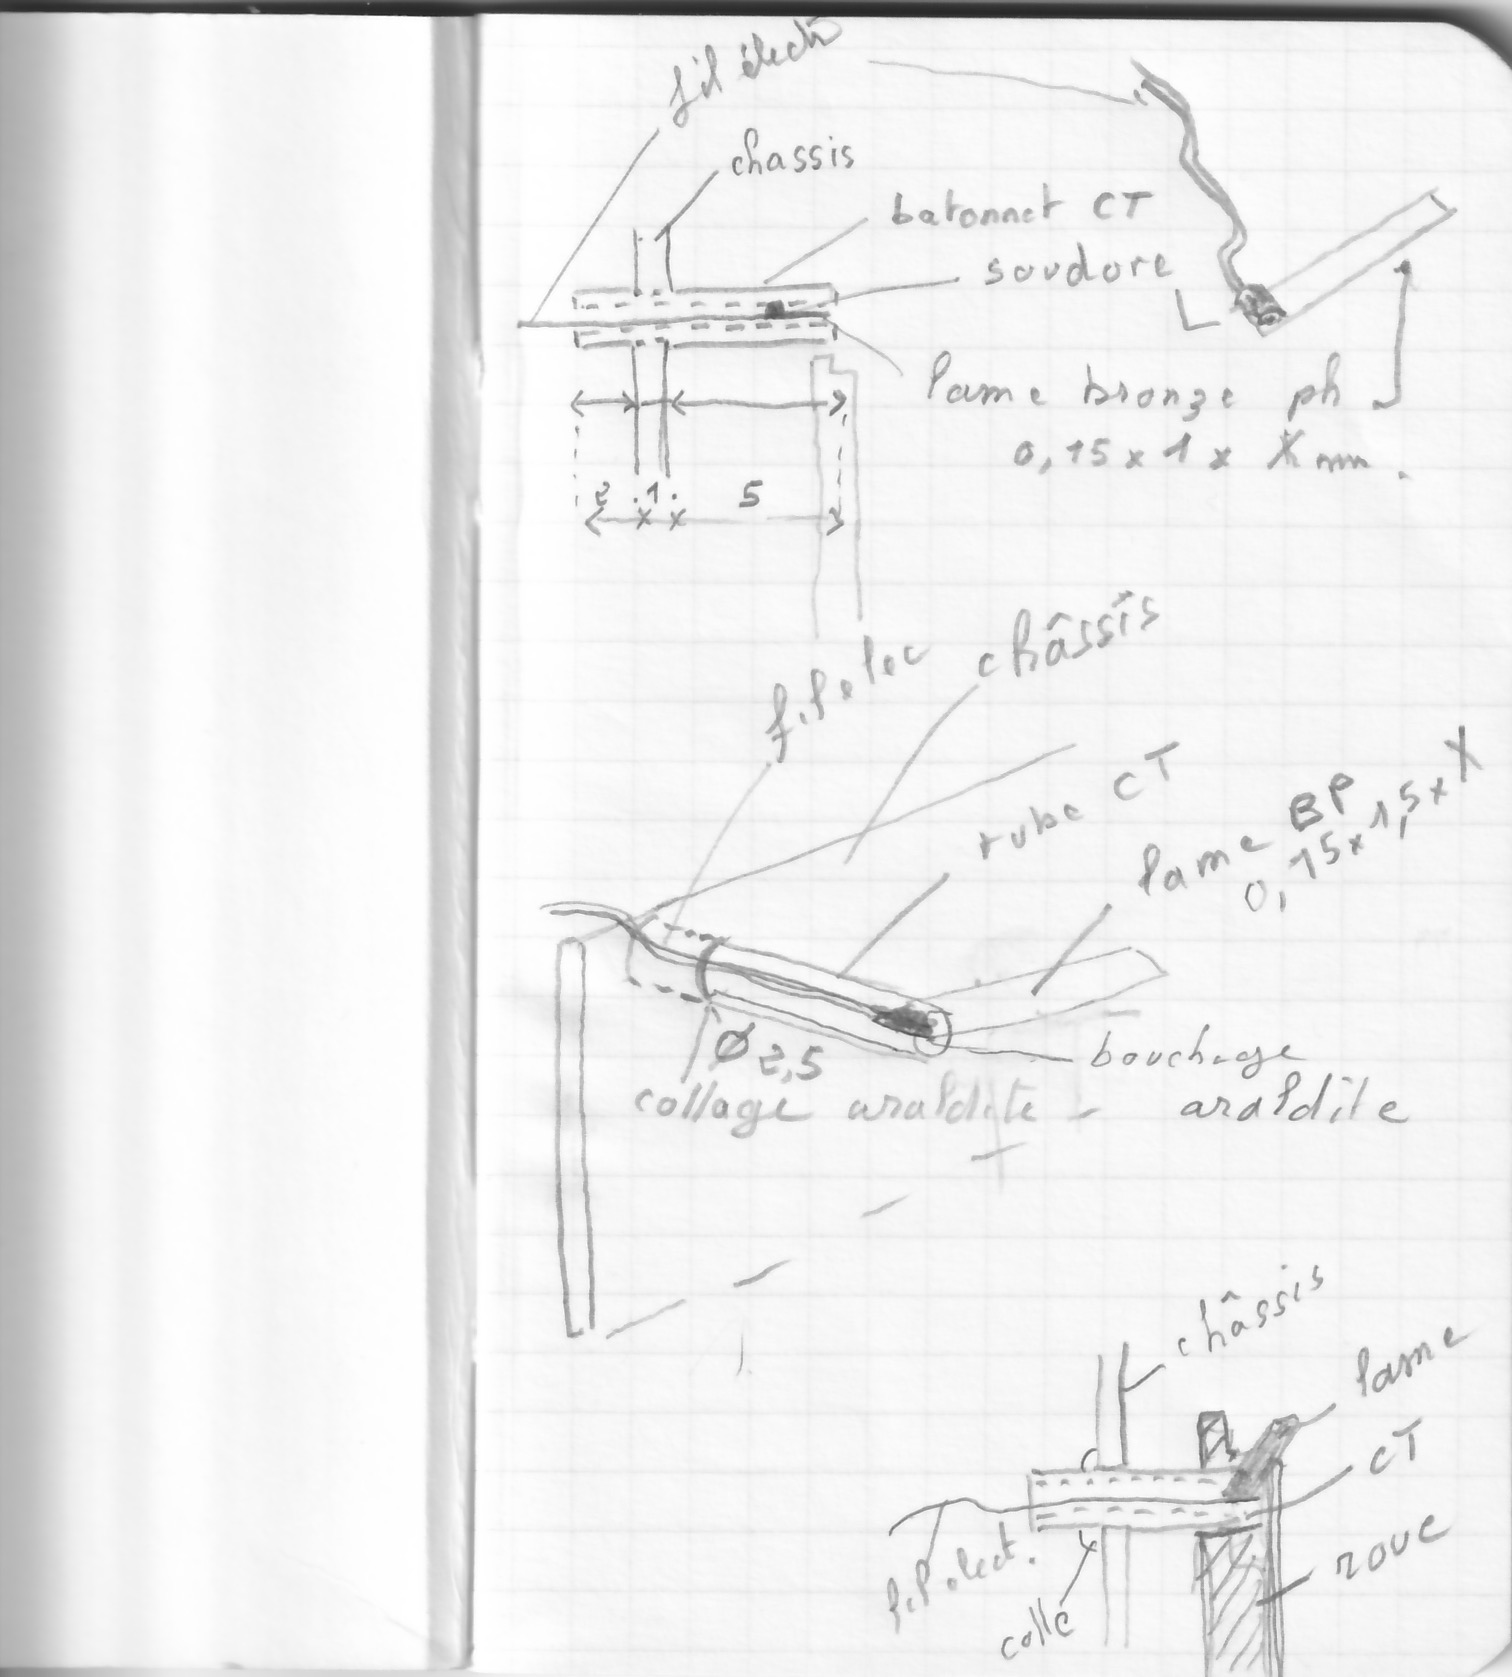 fil élect
chassis
batonnet CT
soudore
lame bronze ph
0,15 x 1 x X mm.
2 1 5
fil elec
châssis
tube CT
lame BP
0,15 x 1,5 x X
Ø 2,5
bouchage
collage araldite - araldite
châssis
lame
CT
roue
fil elect.
colle